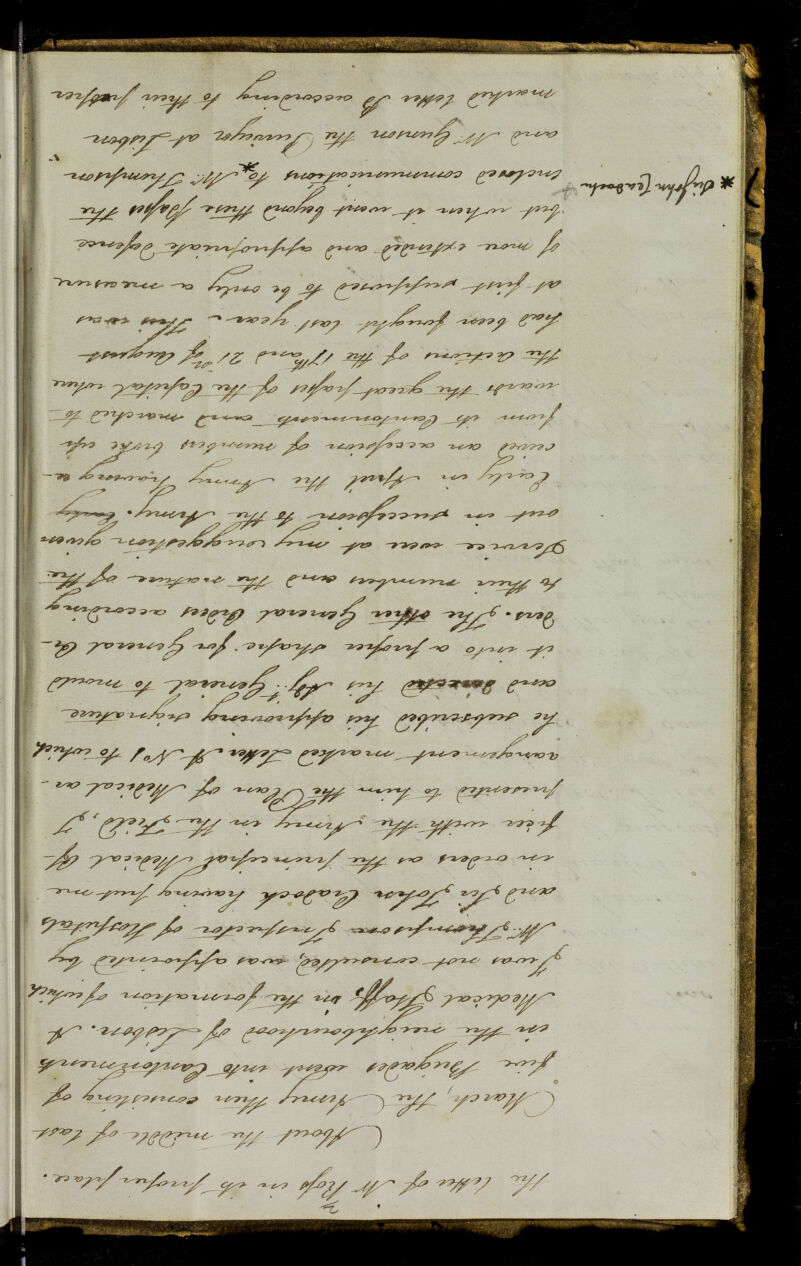 the letter of Mr Ross in its proper place.
About the middle of last
March, the Army then consisting of
five Brigades went into Cantonments
in the neighbourhood of Lisbon. A
Medical Staff, in the formation of which
I was not consulted, was appointed by
Mr. Thompson Inspector of Hospitals
and Sir John Cradock having put me
in orders as the principal Medical Of-
ficer with the Army in the Field, I
presented to him the Plan of Medical ar-
rangement marked Letter A No 1 to which
he subscribed his approving signature
and directed his Adjt. General to mould
it into a proper shape for General Or-
ders. The other General Orders according
to their numbers and the nature of the
Service were at my suggestion given
out in succession to the Army. Early
Early in April the Army having re-
ceived an accession of numbers broke up
from its Cantonments and marched to-
wards the great passes of the Capital where
the actions of the 17th and 21st of August
had been fought last year. This was
at first supposed to be only a measure
of more extended and appropriate defence
but when it went beyond these Passes the
enclosed communications to * Mr. Thompson
and Mr Gunson the Purveyor at Lisbon
marked letter B according to their proper
* Sir John Cradock